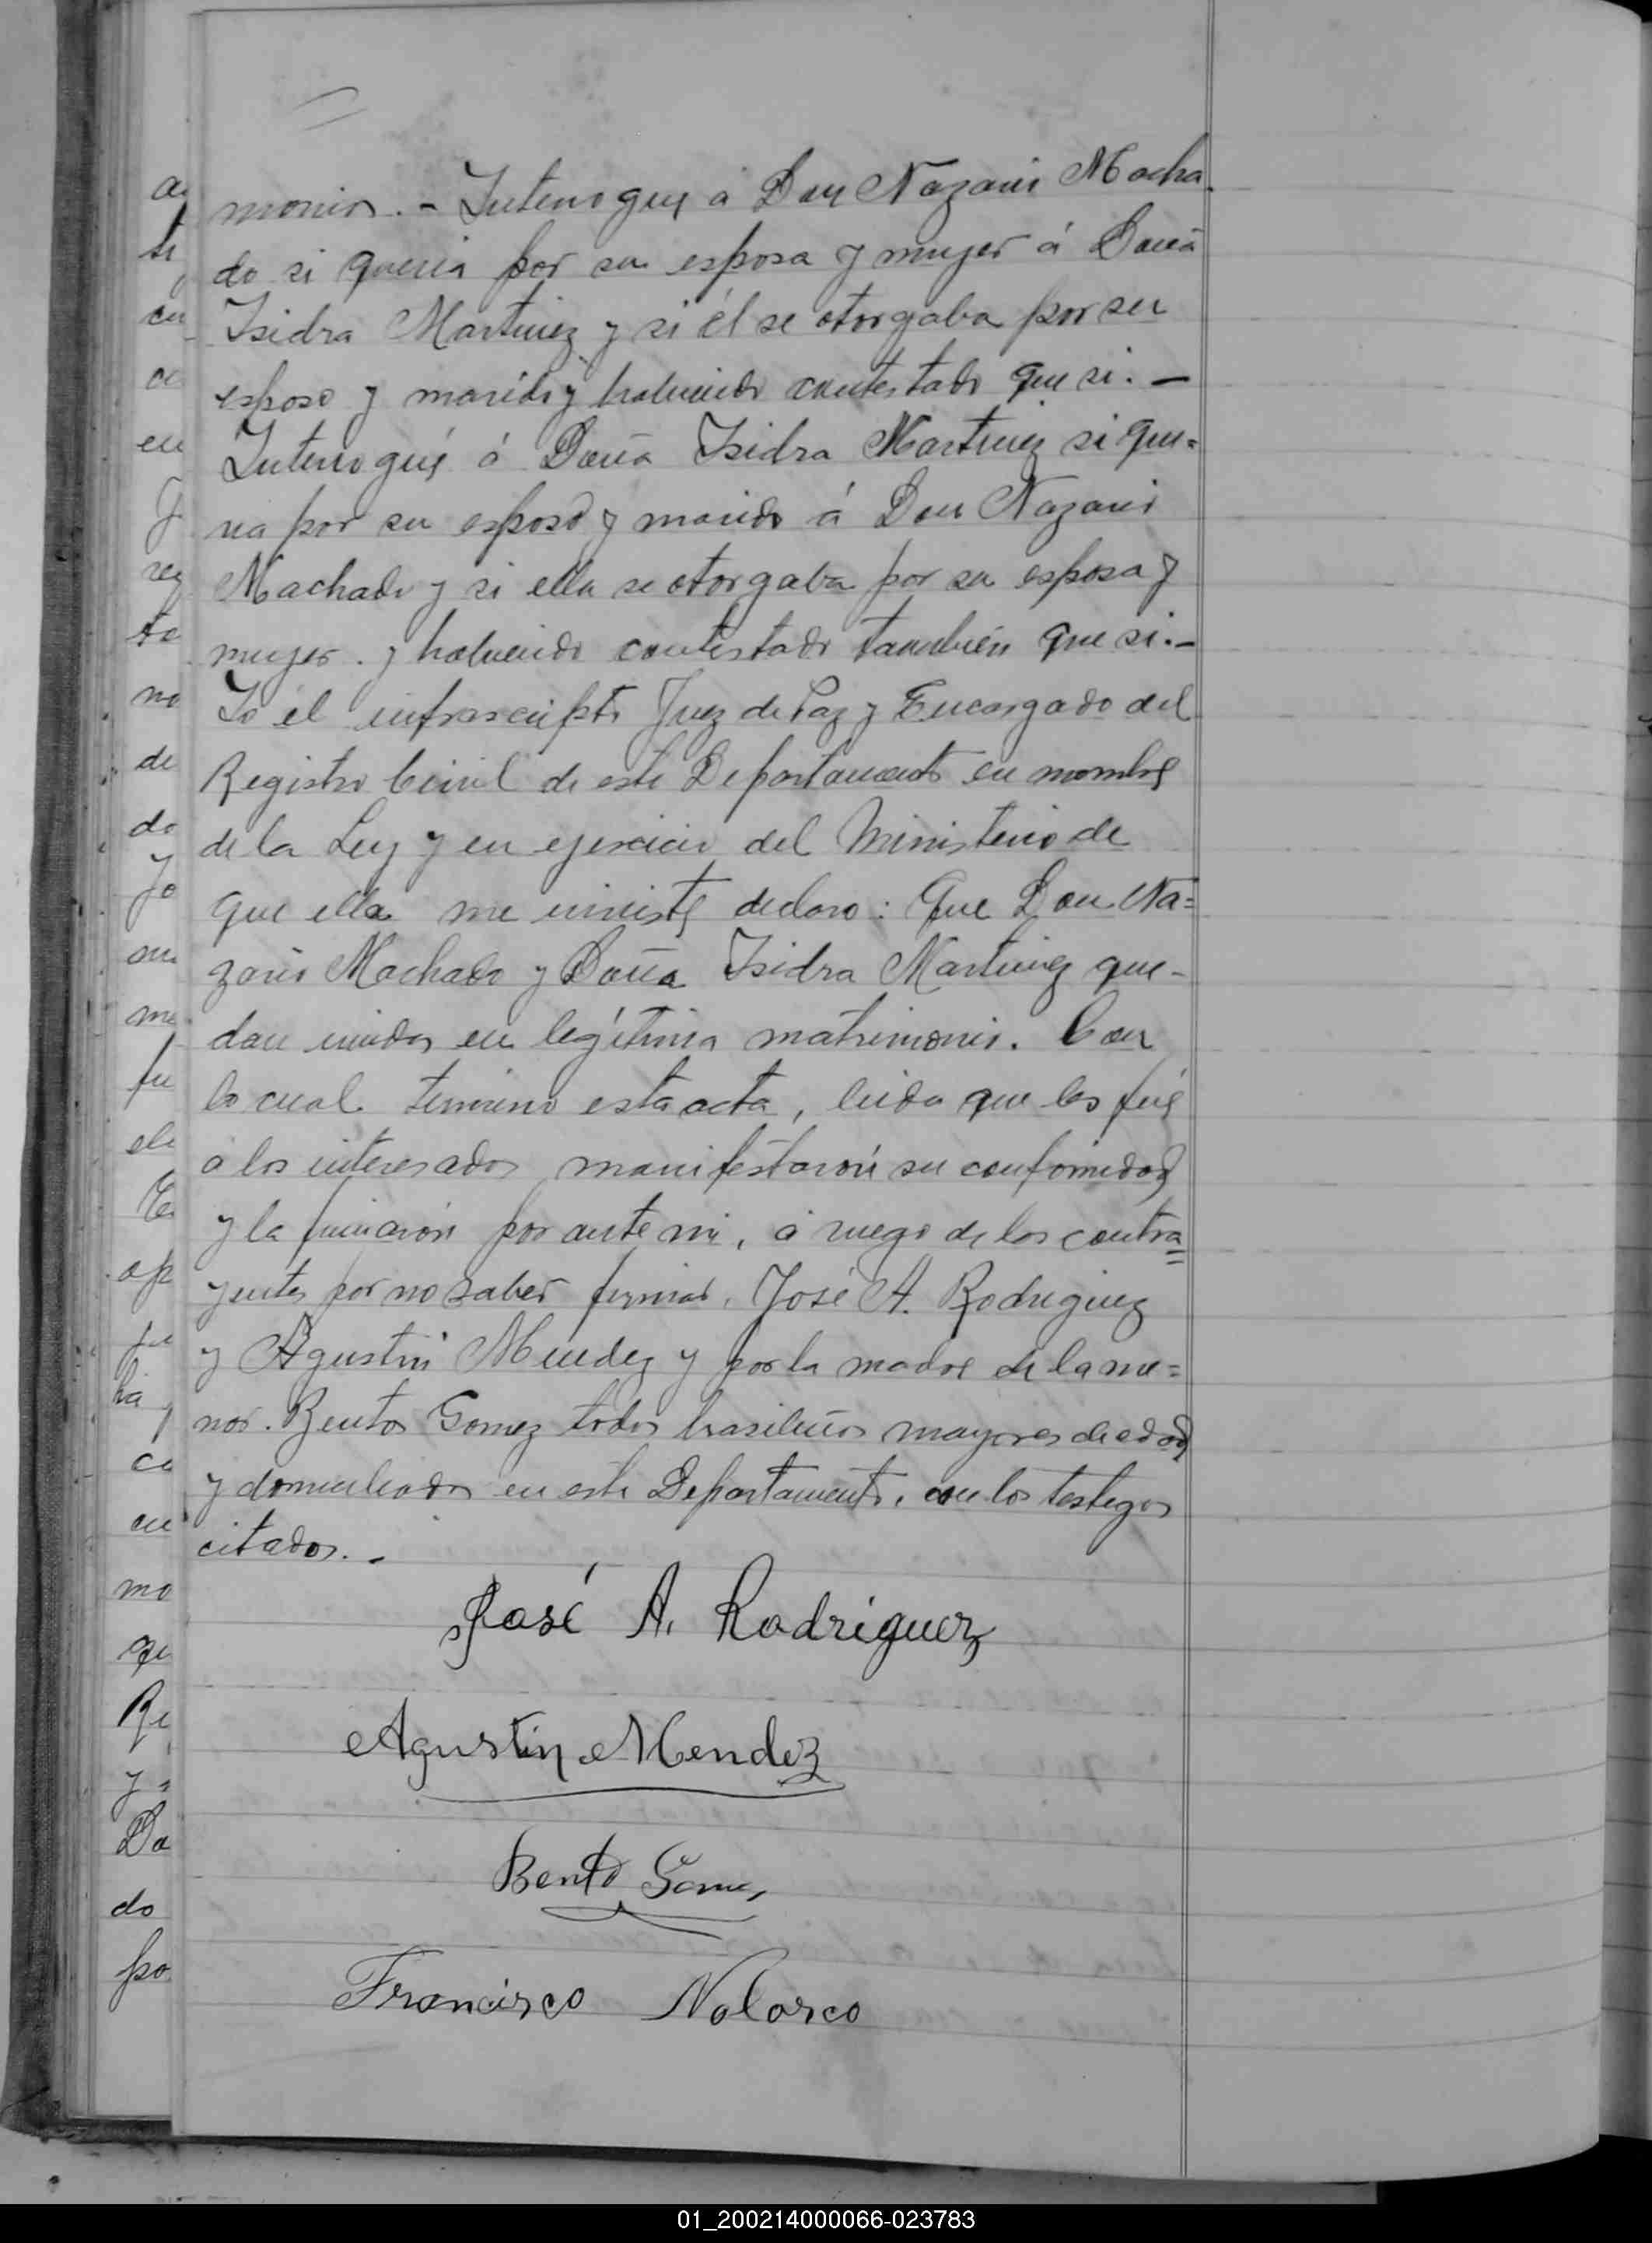 monio. - Interrogue á Don Nazario Macha
do si queria por su esposa y mujer á Doña
Isidra Martinez y si él se otorgaba por su
esposo y marido y habiendo contestado que si. -
Interrogué á Doña Isidra Martinez si que=
ria por su esposo y marido á Don Nazario
Machado y si ella se otorgaba por su esposa y
mujer. y habiendo contestado también que si. -
Yo el infrascripto Juez de Paz y Encargado del
Registro Civil de este Departamento en nombre
de la Ley y en ejercicio del Ministerio de
que ella me inviste declaro: Que Don Na=
zario Machado y Doña Isidra Martinez que-
dan unidos en legítimo matrimonio. Con
lo cual termino esta acta, leida que les fué
a los interesados manifestarón su conformidad
y la firmarón por ante mi, á ruego de los contra=
yentes por no saber firmar, José A. Rodriguez
y Agustin Mendez y por la madre de la me=
nor. Bentos Gomez todos brasileños mayores de edad
y domiciliados en este Departamento, con los testigos
citados. -
José A. Rodriguez
Agustin Mendez
Bento Gomez
Francisco Nolasco
a
ti
cu
en
y
reg
te
no
de
do
yo
me
fu
ele
op
ha
ca
cu
mo
qu
Re
y
Do
do
po
01_200214000066-023783